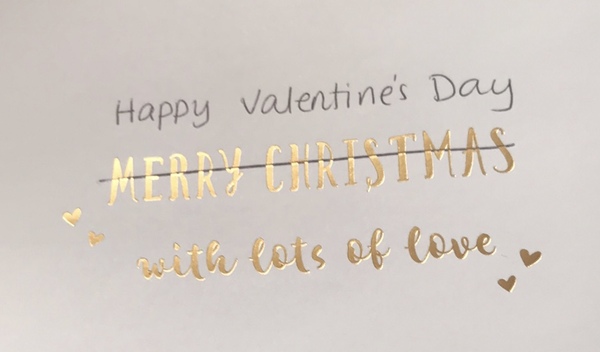 Happy Valentine's Day
MERRY CHRISTMAS
with lots of love